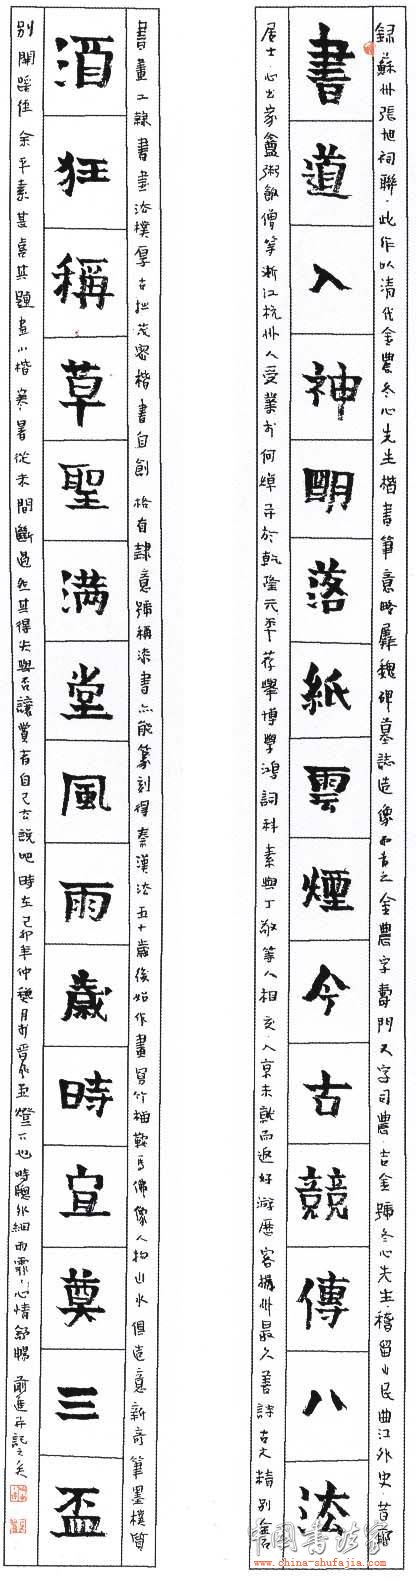 錄蘇州張旭祠聯此作以清代金農冬心先生楷書筆意略屬魏碑墓誌造像而書之金農字壽門又字司農吉金號冬心先生稽留山民曲江外史昔耶
書道入神明落紙雲煙今古競傳八法
居士心出家盦粥飯僧等浙江杭州人受業於何焯并於乾隆元年荐舉博學鴻詞科素與丁敬等人相交入京未就而返好游歷客揚州最久善詩古文精別
書畫工隸書書法樸厚古拙茂密楷書自創一格有隸意號稱漆書亦能篆刻得秦漢法五十歲後始作畫寫竹梅鞍馬佛像人物山水俱造意新奇筆墨樸質
酒狂稱草聖滿堂風雨歲時宣奠三盃
別開蹊徑余平素甚喜其題畫小楷寒暑從未間斷過然其得失與否讓賞者自己去說吧時在己卯年仲穗月於燈下也時窗外細雨霏心情舒暢前進并記之矣
中國書法家
www.china-shufajia.com